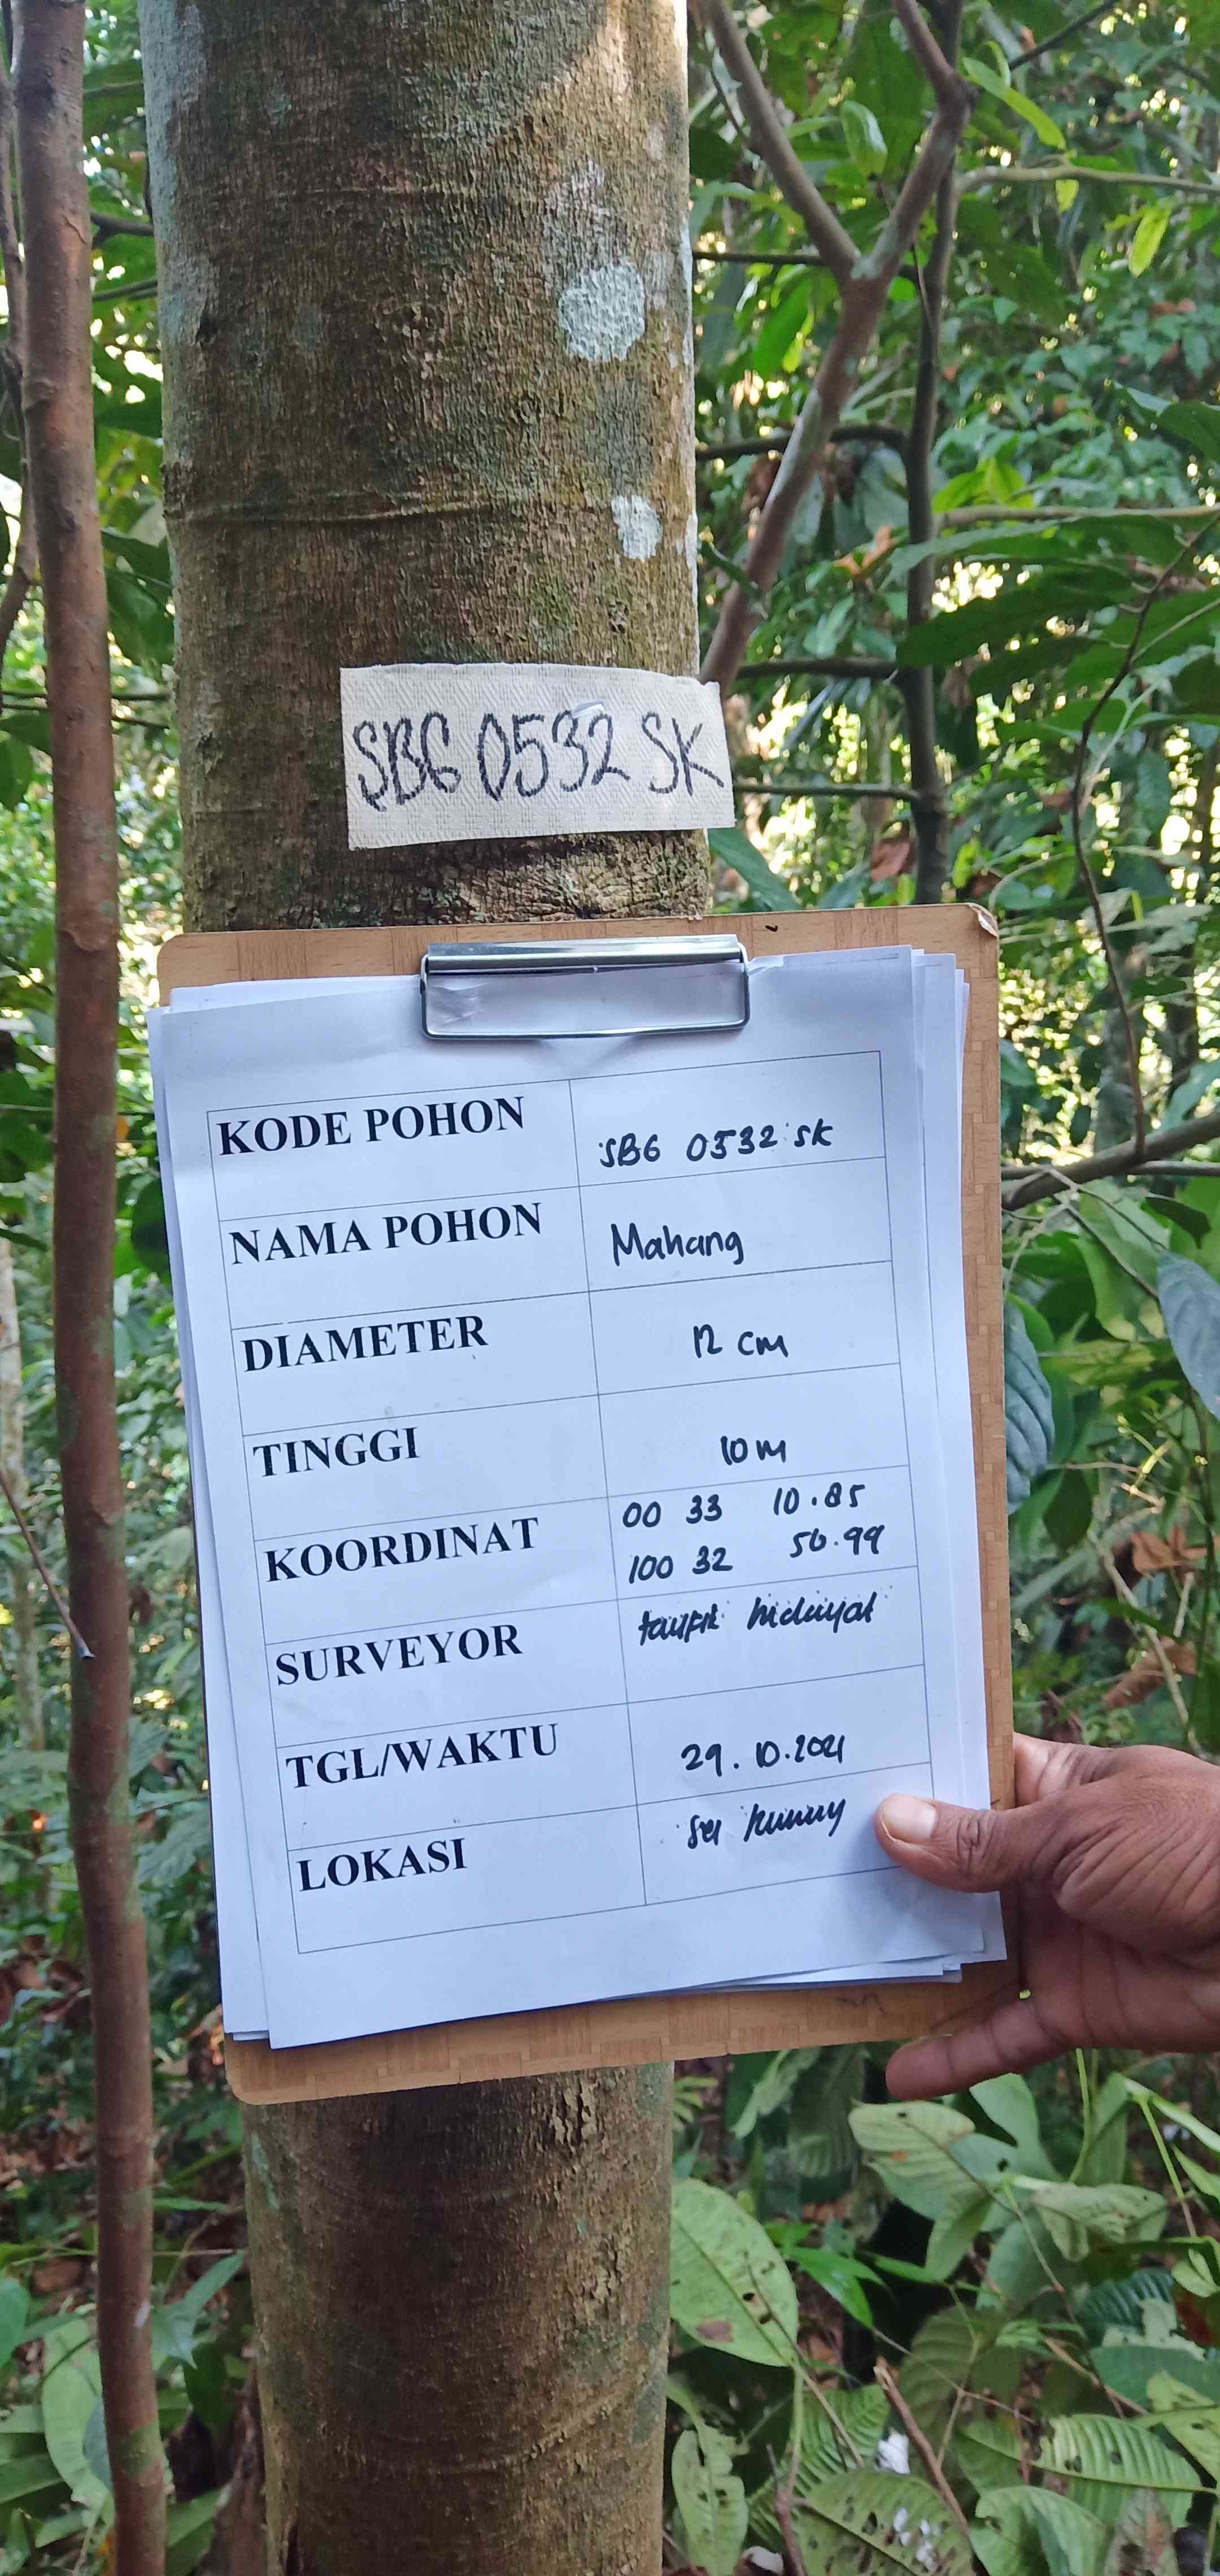 SBG 0532 SK
KODE POHON SBG 0532 SK
NAMA POHON Mahang
DIAMETER 12 cm
TINGGI 10 m
KOORDINAT 00 33 10.85
100 32 50.99
SURVEYOR taufik hidayat
TGL/WAKTU 29.10.2021
LOKASI sei